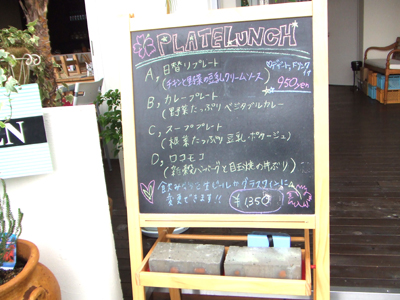 PLATE LUNCH
A, 日替りプレート
(チキンと野菜の豆乳クリームソース)
デザート,ドリンク付
950yen
B, カレープレート
(野菜たっぷりベジタブルカレー
C, スーププレート
(緑菜たっぷり豆乳ポタージュ)
D, ロコモコ
(ハンバーグと目玉焼
生ビール グラスワイン
変更できます!!
¥1350
EN